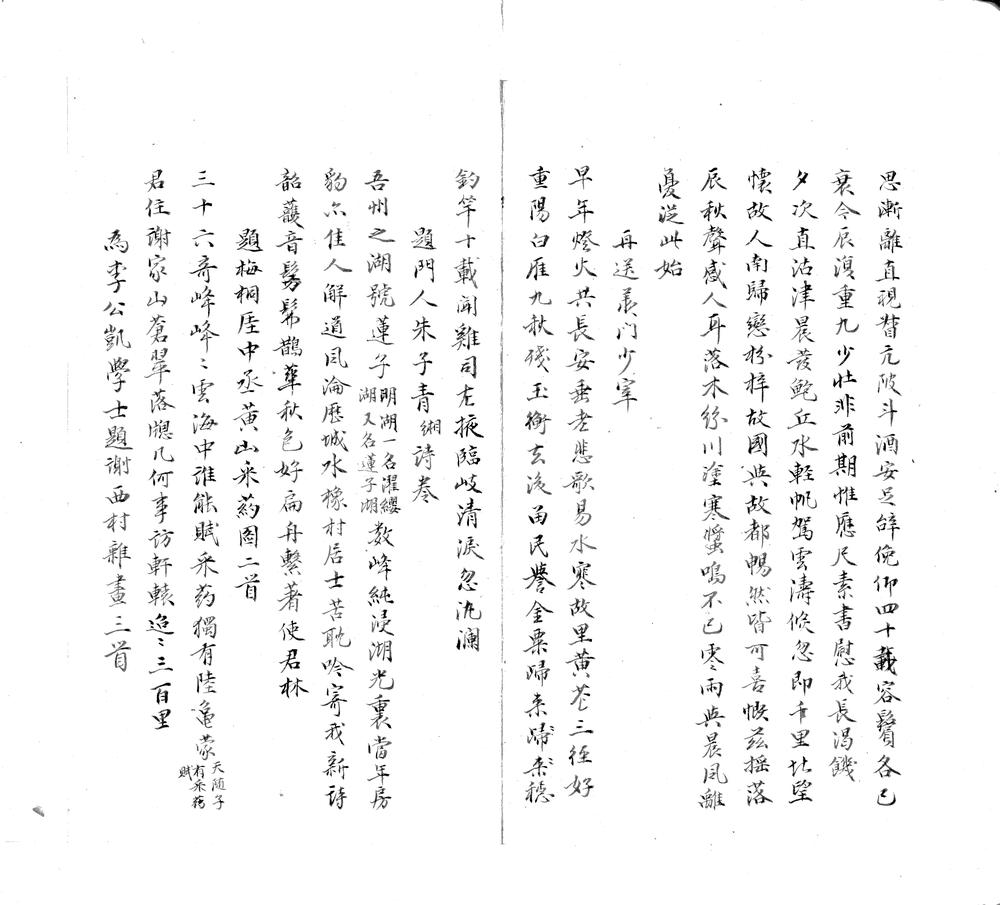 思漸離直視瞀元陂斗酒安足辭俛仰四十載容鬢各已
衰今辰復重九少壯非前期惟應尺素書慰我長渴饑
夕次直沽津晨發鮑丘水輕帆駕雲濤倏忽即千里北望
懷故人南歸戀枌梓故國與故都暢然皆可喜慨茲摇落
辰秋聲感人耳落木絲川塗寒螿鳴不已零雨與晨風離
憂從此始
再送羨門少宰
早年燈火共長安垂老悲歌易水寒故里黃花三徑好
重陽白雁九秋殘玉衡去後留民譽金粟歸來歸夢穩
釣竿十載聞雞司左掖臨岐清淚忽汍瀾
題門人朱子青緗詩卷
吾州之湖號蓮子明湖一名濯纓湖又名蓮子湖數峰純浸湖光裏當年房
豹亦佳人解道風淪歷城水橡村居士苦耽吟寄我新詩
韶濩音髣髴鵲華秋色好扁舟繫著使君林
題梅桐厓中丞黃山采葯圖二首
三十六奇峰峰〻雲海中誰能賦采葯獨有陸龜蒙天随子有采葯賦
君住謝家山蒼翠落牕几何事訪軒轅迢〻三百里
為李公凱學士題謝西村雜畫三首